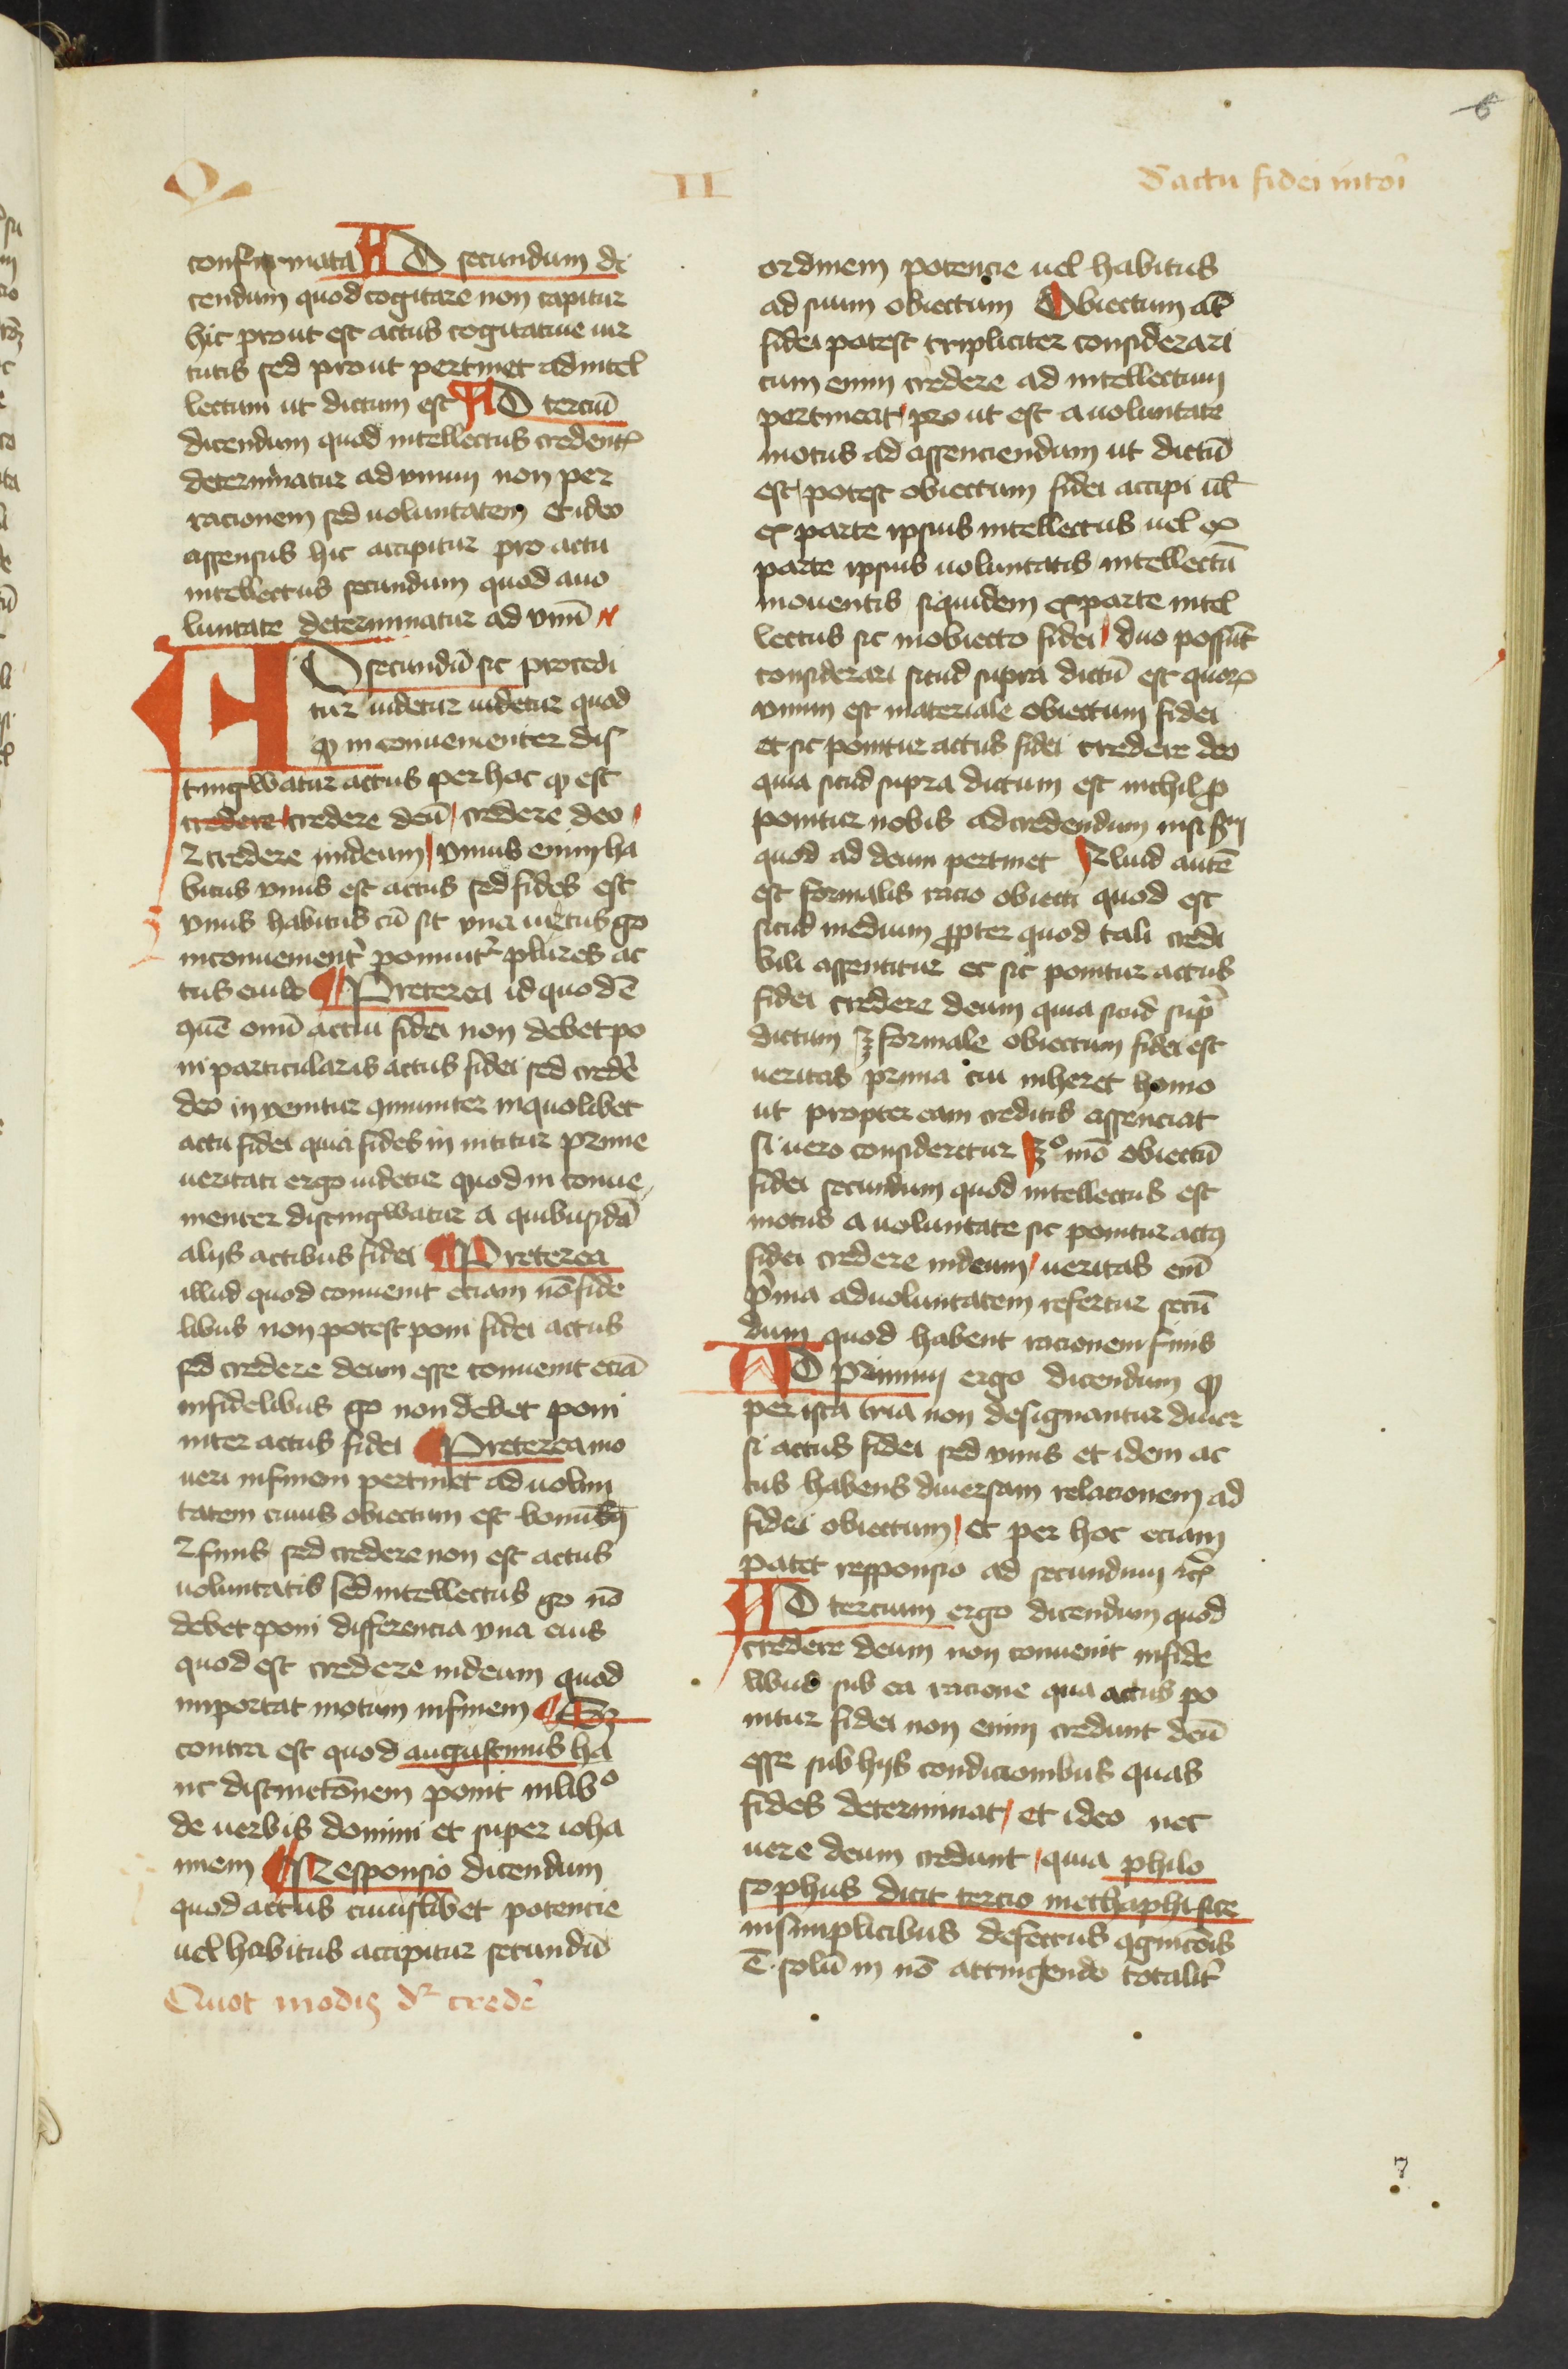 Q II
d̄ actu fidei intoi
6
confirmata AD secundum di
cendum quod cogitare non capitur
hic prout est actus cogitatiue uir
tutis sed prout pertinet ad intel
lectum ut dictum est AD terciū
dicendum quod intellectus credentꝭ
determinatur ad vnum non per
racionem sed uoluntatem et ideo
assensus hic accipitur pro actu
intellectus secundum quod auo
luntate determinatur ad vnū
AD secundū sic procedi
tur uidetur uidetur quod
ꝙ inconuenienter dis
tingwatur actus per hoc ꝙ est
credere credere deū credere deo
⁊ credere indeum vnius enim ha
bitus vnus est actus sed fides est
vnus habitus cū sit vna uirtus go
inconuenient̄ ponunt᷑ plures ac
tus eius Preterea id quod ē
quē omī actui fidei non debet po
ni particularis actus fidei sed credē
deo inuenitur qmuniter inquolibet
actu fidei quia fides in nititur prime
ueritati ergo uidetur quod in conue
nienter distingwatur a quibusdā
alijs actibus fidei Preterea
illud quod conuenit eciam nō fide
libus non potest poni fidei actus
sed credere deum esse conuenit eciā
infidelibus go non debet poni
inter actus fidei Preterea mo
ueri infinem pertinet ad uolun
tatem cuius obiectum est bonū
⁊ finis sed credere non est actus
uoluntatis sed intellectus go nō
debet poni differencia vna eius
quod est credere indeum quod
importat motum infinem Sꝫ
contra est quod augustinus ha
nc distinctōnem ponit inlibᵒ
de uerbis domini et super ioha
nnem Responsio dicendum
quod actus cuiuslibet potencie
uel habitus accipitur secundū
Quot modis dr̄ credē
ordinem potencie uel habitus
ad suum obiectum Obiectum at̄
fidei potest tripliciter considerari
cum enim credere ad intellectum
pertineat prout est auoluntate
motus ad assenciendum ut dictū
est potest obiectum fidei accipi ul̄
ex parte ipsius intellectus uel ex
parte ipsius uoluntatis intellectū
mouentis siquidem exparte intel
lectus sic inobiecto fidei duo possūt
considerari sicud supra dictū est quorꝫ
vnum est materiale obiectum fidei
et sic ponitur actus fidei credere deo
quia sicud supra dictum est nichil ꝓ
ponitur nobis adcredendum nisi sm̄
quod ad deum pertinet Aliud autē
est formalis racio obiecti quod est
sicud medium ꝓpter quod tali credi
bili assentitur et sic ponitur actus
fidei credere deum quia sicud supᵃ
dictum ē formale obiectum fidei est
ueritas prima cui inheret homo
ut propter eam creditis assenciat
si uero consideretur 3ᵒ mō obiectū
fidei secundum quod intellectus est
motus auoluntate sic ponitur actꝰ
fidei credere indeum ueritas enī
pͥma aduoluntatem refertur secū
dum quod habent racionem finis
AD primum ergo dicendum ꝙ
per ista tria non designantur diuer
si actus fidei sed vnus et idem ac
tus habens diuersam relacionem ad
fidei obiectum et per hoc eciam
patet responsio ad secundum
AD tercium ergo dicendum quod
credere deum non conuenit infide
libus sub ea racione qua actus po
nitur fidei non enim credunt deū
esse sub hijs condicionibus quas
fides determinat et ideo nec
uere deum credunt quia philo
sophus dicit tercio methaphisice
insimplicibus defectus qgnicōis
ē solū in nō attingendo totalit̄
7